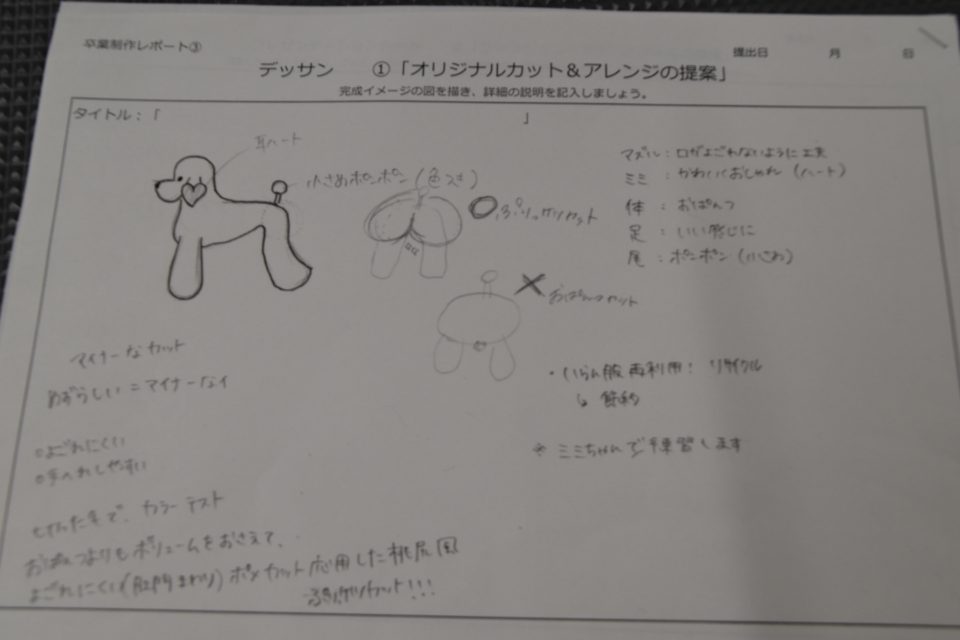 卒業制作レポート③
提出日 月 日
デッサン ①「オリジナルカット＆アレンジの提案」
完成イメージの図を描き、詳細の説明を記入しましょう。
タイトル：「 」
耳ハート
小さめポンポン(色つき)
ぷりっケツカット
おぱんつカット
マズル：口がよごれないように工夫
ミミ：かわいくおしゃれ(ハート)
体：おぱんつ
足：いい感じに
尾：ポンポン(小さめ)
マイナーなカット
めずらしい＝マイナーなイ
○よごれにくい
○手入れしやすい
・いらん服再利用！ リサイクル
↳ 節約
※ ミミちゃんで練習します
カラーテスト
おぱんつよりもボリュームをおさえて、
よごれにくい(肛門まわり)ポメカット応用した桃尻風
ぷりケツカット!!!